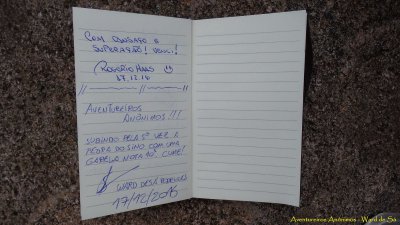 COM OUSADIA E
SUPERAÇÃO! VENCI!
ROGÉRIO HAAS
17.12.16
AVENTUREIROS
ANÔNIMOS!!!
SUBINDO PELA 5ª VEZ A
PEDRA DO SINO COM UMA
GALERA NOTA 10. CUME!
WARD DE SÁ RODRIGUES
17/12/2016
Aventureiros Anônimos - Ward de Sá